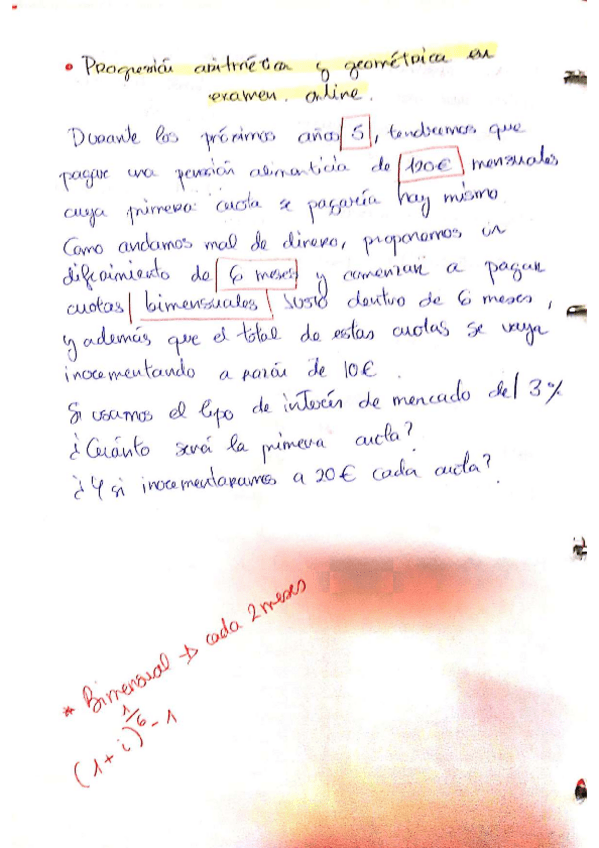 • Progresión aritmética y geométrica en
examen online.
Durante los próximos años 5, tendremos que
pagar una pensión alimenticia de 120€ mensuales
cuya primera cuota se pagaría hoy mismo.
Como andamos mal de dinero, proponemos un
diferimiento de 6 meses y comenzar a pagar
cuotas bimensuales justo dentro de 6 meses,
y además que el total de estas cuotas se vaya
incrementando a razón de 10€.
Si usamos el tipo de interés de mercado del 3%
¿Cuánto será la primera cuota?
¿Y si incrementaramos a 20€ cada cuota?
* Bimensual → cada 2 meses
(1+i)^1/6 - 1